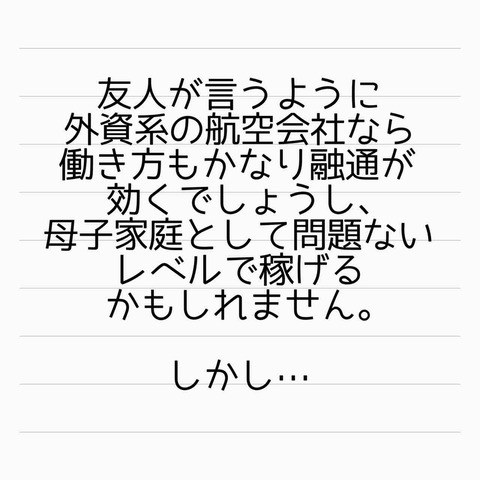 友人が言うように
外資系の航空会社なら
働き方もかなり融通が
効くでしょうし、
母子家庭として問題ない
レベルで稼げる
かもしれません。
しかし…